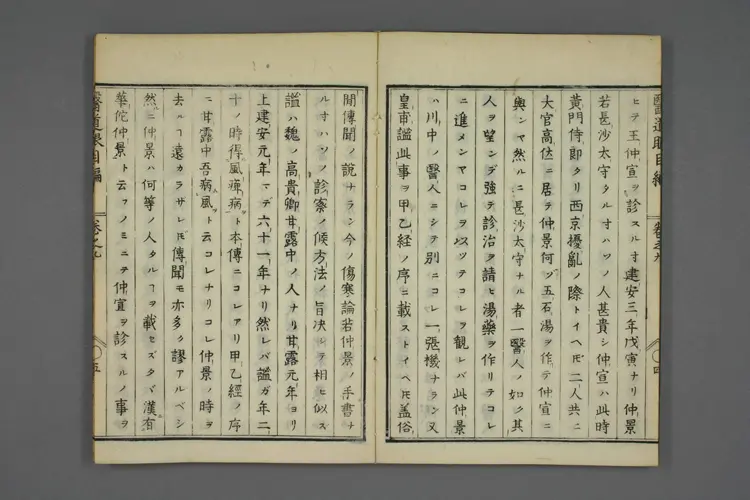 ヒテ王仲宣ヲ診スルオ建安三年戊寅ナリ仲景
若甚沙太守タルオハソノ人甚貴シ仲宣ハ此時
黃門侍郎タリ西京擾亂ノ際トイヘ𪜈二人共ニ
大官高位ニ居ヲ仲景何ソ五石湯ヲ作テ仲宣ニ
輿ンヤ然ルニ甚沙太守ナル者一醫人ノ如ク其
人ヲ望ンデ強テ診治ヲ請ヒ湯藥ヲ作リテコレ
ニ進メンヤコレヲ以ツテコレヲ觀レバ此仲景
ハ川中ノ醫人ニシテ別ニコレ一張機ナラン又
皇甫謐此事ヲ甲乙経ノ序ニ載ストイヘ𪜈盖俗
卷之九
四
間傳聞ノ説ナラン今ノ傷寒論若仲景ノ手書ナ
ルオハソノ診察ノ候方法ノ旨决シテ相ヒ似ス
謐ハ魏ノ高貴卿甘露中ノ人ナリ甘露元年ヨリ
上建安元年マデ六十一年ナリ然レバ謐ガ年二
十ノ時得風痺病ト本傳ニコレアリ甲乙經ノ序
ニ甘露中吾病風ト云コレナリコレ仲景ノ時ヲ
去ルヿ遠カラザレ𪜈傳聞モ亦多ク謬アルベシ
然ニ仲景ハ何等ノ人タルヿヲ載セズタヾ漢有
華佗仲景ト云フノミニテ仲宣ヲ診スルノ事ヲ
醫道眼目編
卷之九
五